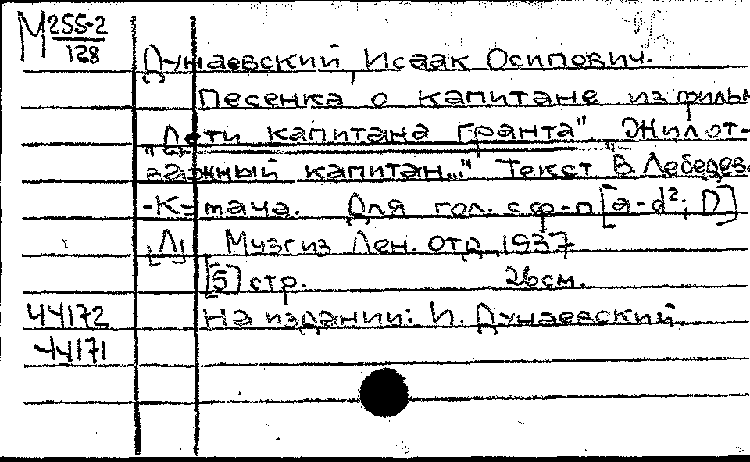 М 255-2
128
Дунаевский, Исаак Осипович.
Песенка о капитане из фильм
"Дети капитана гранта". "Жил от-
важный капитан..." Текст В Лебедев
-К-мача. Для гол. с ф-п [a-d²; D]
[Л], Музгиз Лен. отд, 1937
[5] стр. 26см.
44172 На издании: И. Дунаевский.
44171